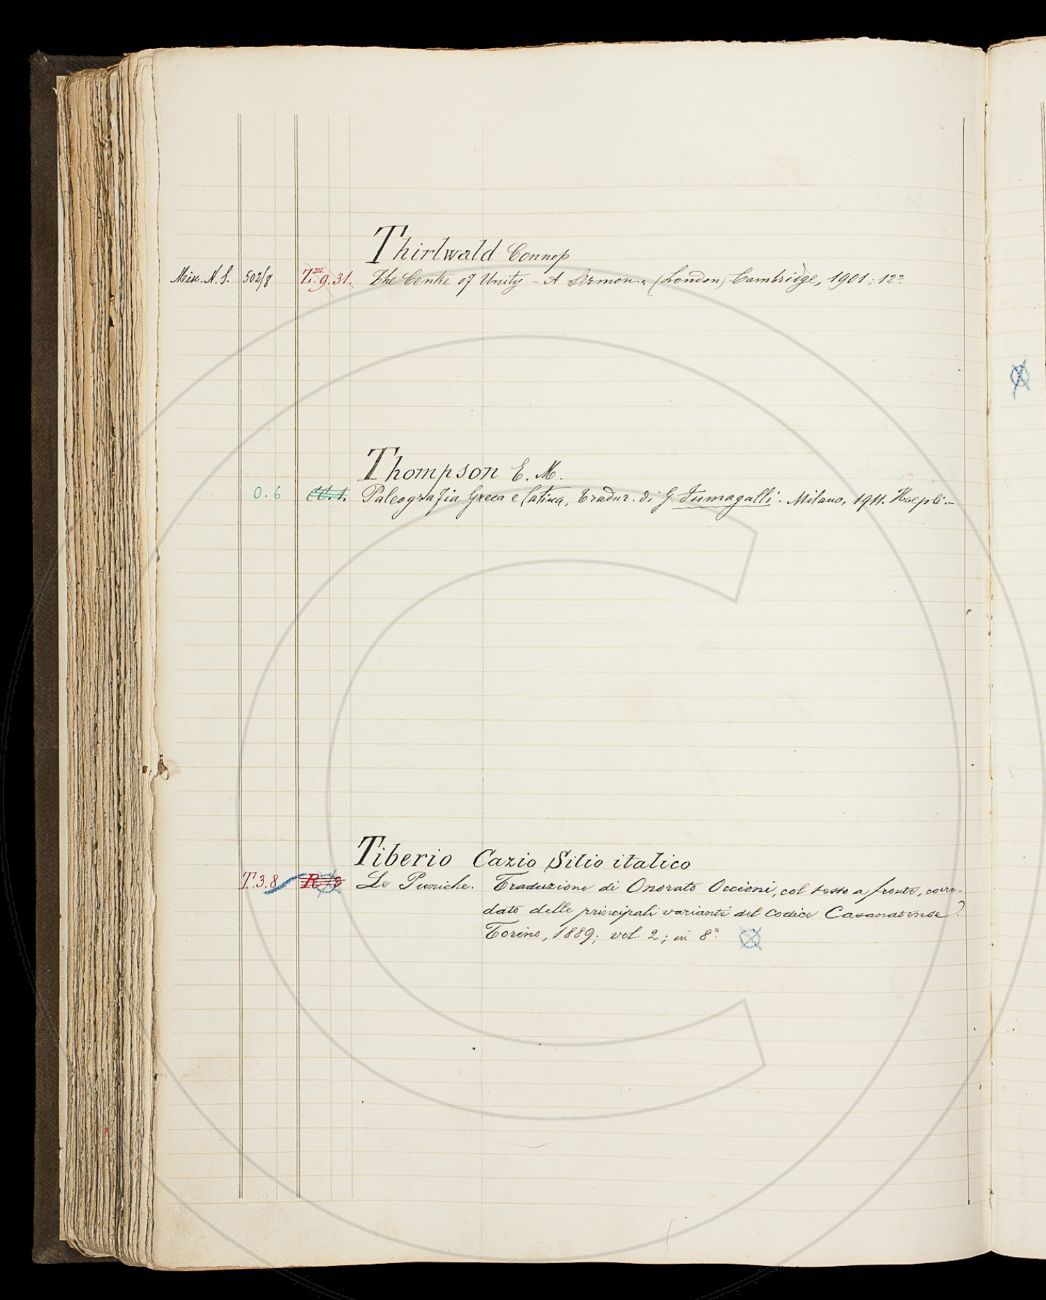 Thirlwald Connop
Misc. N. S. 502/8 Z.III g. 31. The Centre of Unity - A Sermon. (London) Cambridge, 1901; 12°
Thompson E. M.
O. 6 Paleografia Greca e latina, Traduz. di G. Fumagalli. Milano, 1911. Hoepli.-
Tiberio Cazio Silio italico
T. 3. 8 Le Puniche. Traduzione di Onorato Occioni, col testo a fronte, corre-
dato delle principali varianti del codice Casanatense?
Torino, 1889; vol. 2; in 8°